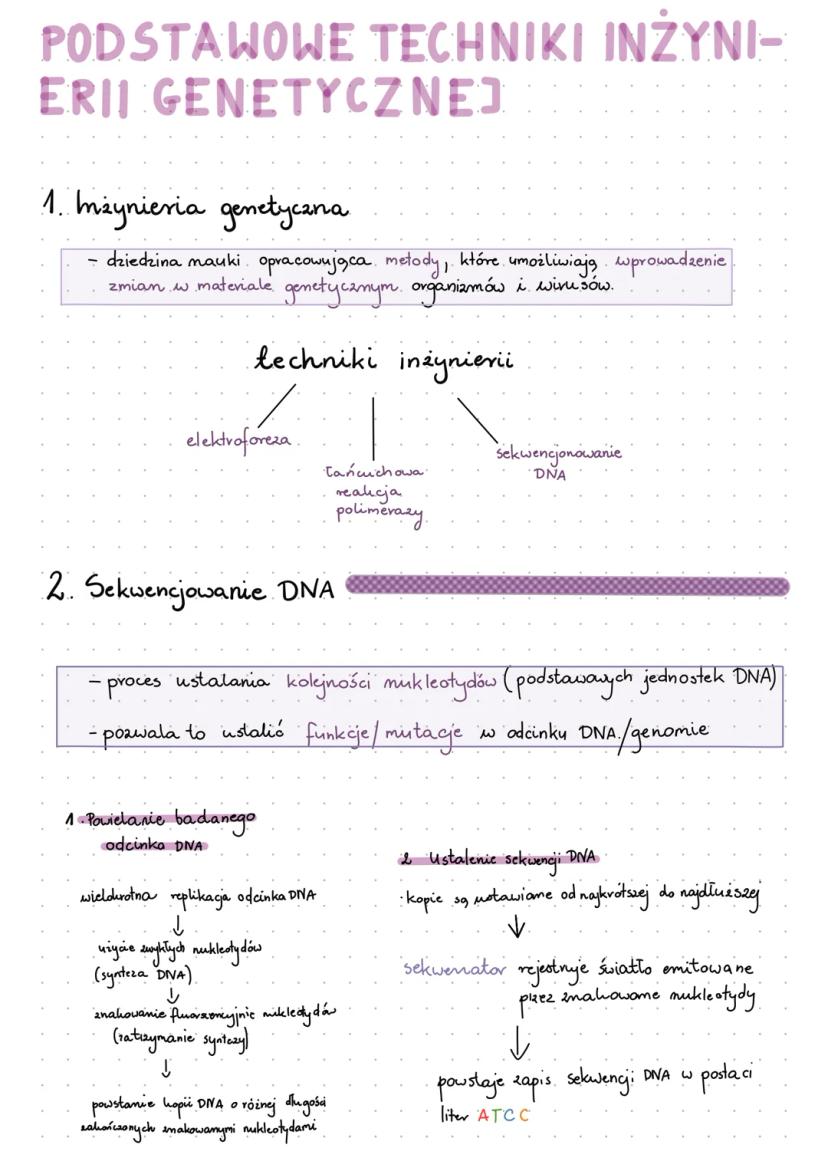 PODSTAWOWE TECHNIKI INŻYNI-
ERII GENETYCZNEJ
1. Inżynieria genetyczna
- dziedzina nauki opracowująca metody, które umożliwiają wprowadzenie
zmian w materiale genetycznym organizmów i wirusów.
techniki inżynierii
elektroforeza
sekwencjonowanie
DNA
łańcuchowa
reakcja
polimerazy
2. Sekwencjowanie DNA
- proces ustalania kolejności nukleotydów (podstawowych jednostek DNA)
- pozwala to ustalić funkcje/mutacje w odcinku DNA./genomie
1. Powielanie badanego
odcinka DNA
wielokrotna replikacja odcinka DNA
↓
użycie zwykłych nukleotydów
(synteza DNA)
↓
znakowanie fluorescencyjnie nukleotydów
(zatrzymanie syntezy)
↓
powstanie kopii DNA o różnej długości
zakończonych znakowanymi nukleotydami
2 Ustalenie sekwencji DNA
· kopie są ustawiane od najkrótszej do najdłuższej
↓
sekwenator rejestruje światło emitowane
przez znakowane nukleotydy
↓
powstaje zapis sekwencji DNA w postaci
liter ATCC